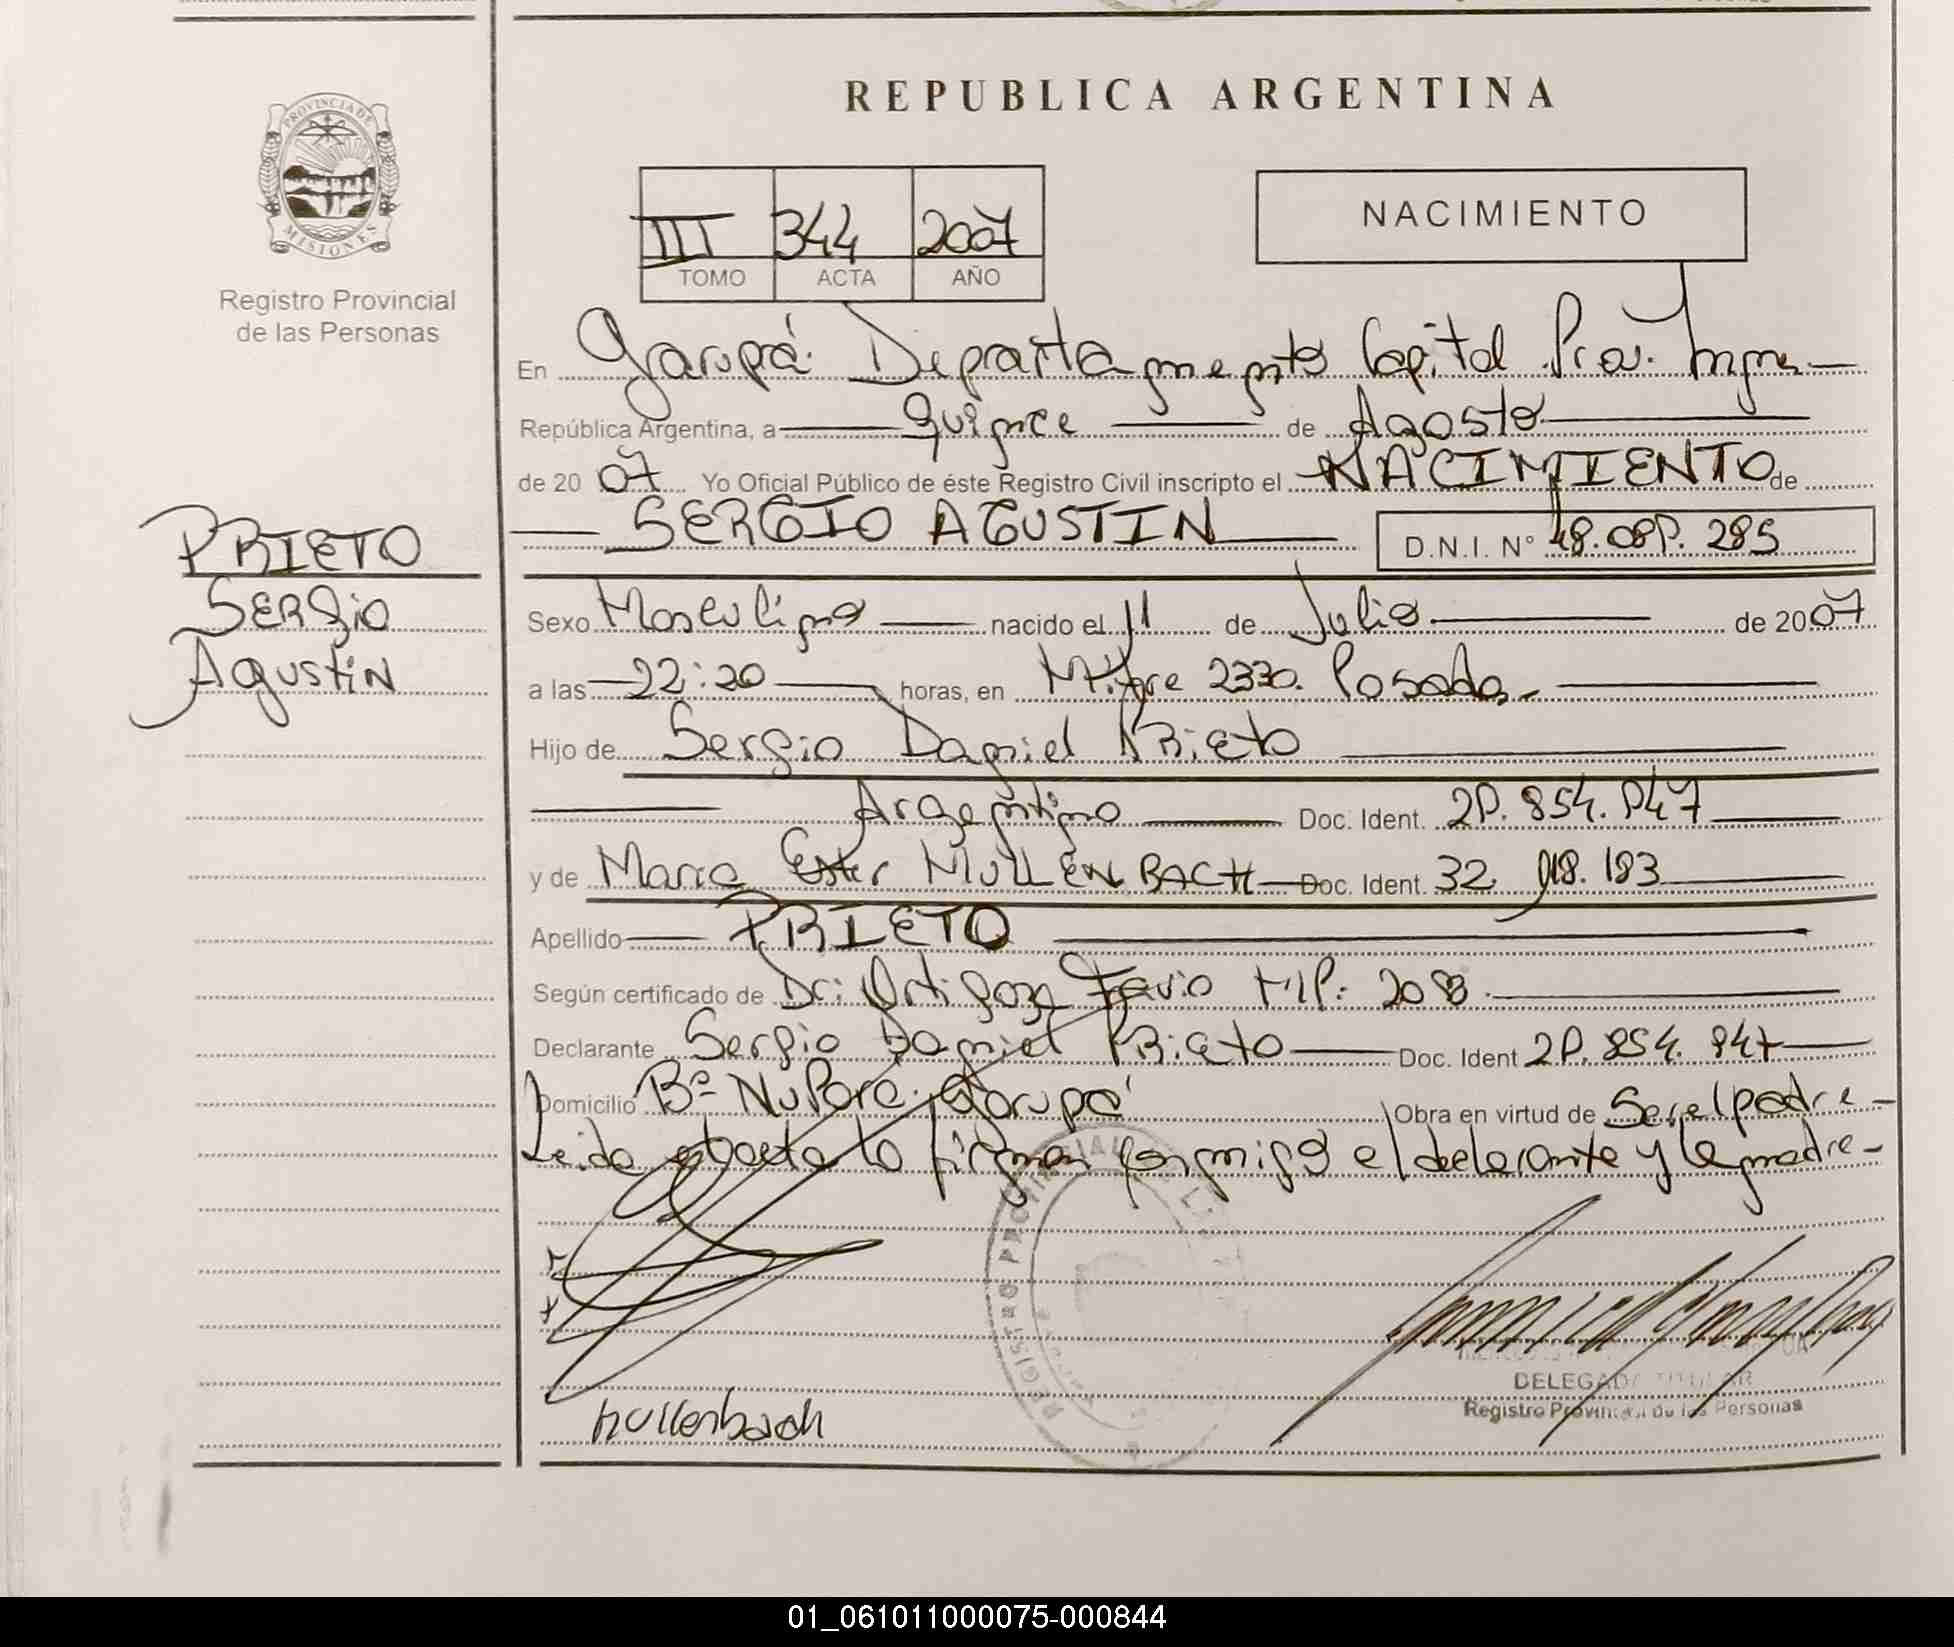 REPUBLICA ARGENTINA
PROVINCIA DE MISIONES
Registro Provincial
de las Personas
III 344 2007
TOMO ACTA AÑO
NACIMIENTO
En Garupá. Departamento Capital Prov. Mnes.
República Argentina, a Quince de Agosto
de 2007 Yo Oficial Público de éste Registro Civil inscripto el NACIMIENTO de
SERGIO AGUSTIN D.N.I. Nº 285
PRIETO
Sergio
Agustin
Sexo Masculino nacido el 11 de Julio de 2007
a las 22:20 horas, en Mitre 2330. Posadas
Hijo de Sergio Daniel Prieto
Argentino Doc. Ident.
y de Maria Ester MULLENBACH Doc. Ident. 32. 183
Apellido PRIETO
Según certificado de Dr: Ortigoza Favio M.P: 
Declarante Sergio Daniel Prieto Doc. Ident
Domicilio Bº Ñu Porá. Garupá Obra en virtud de Ser el padre
Leida el acta la firman conmigo el declarante y la madre
REGISTRO PROVINCIAL
Mullenbach
DELEGADA TITULAR
Registro Provincial de las Personas
01_061011000075-000844